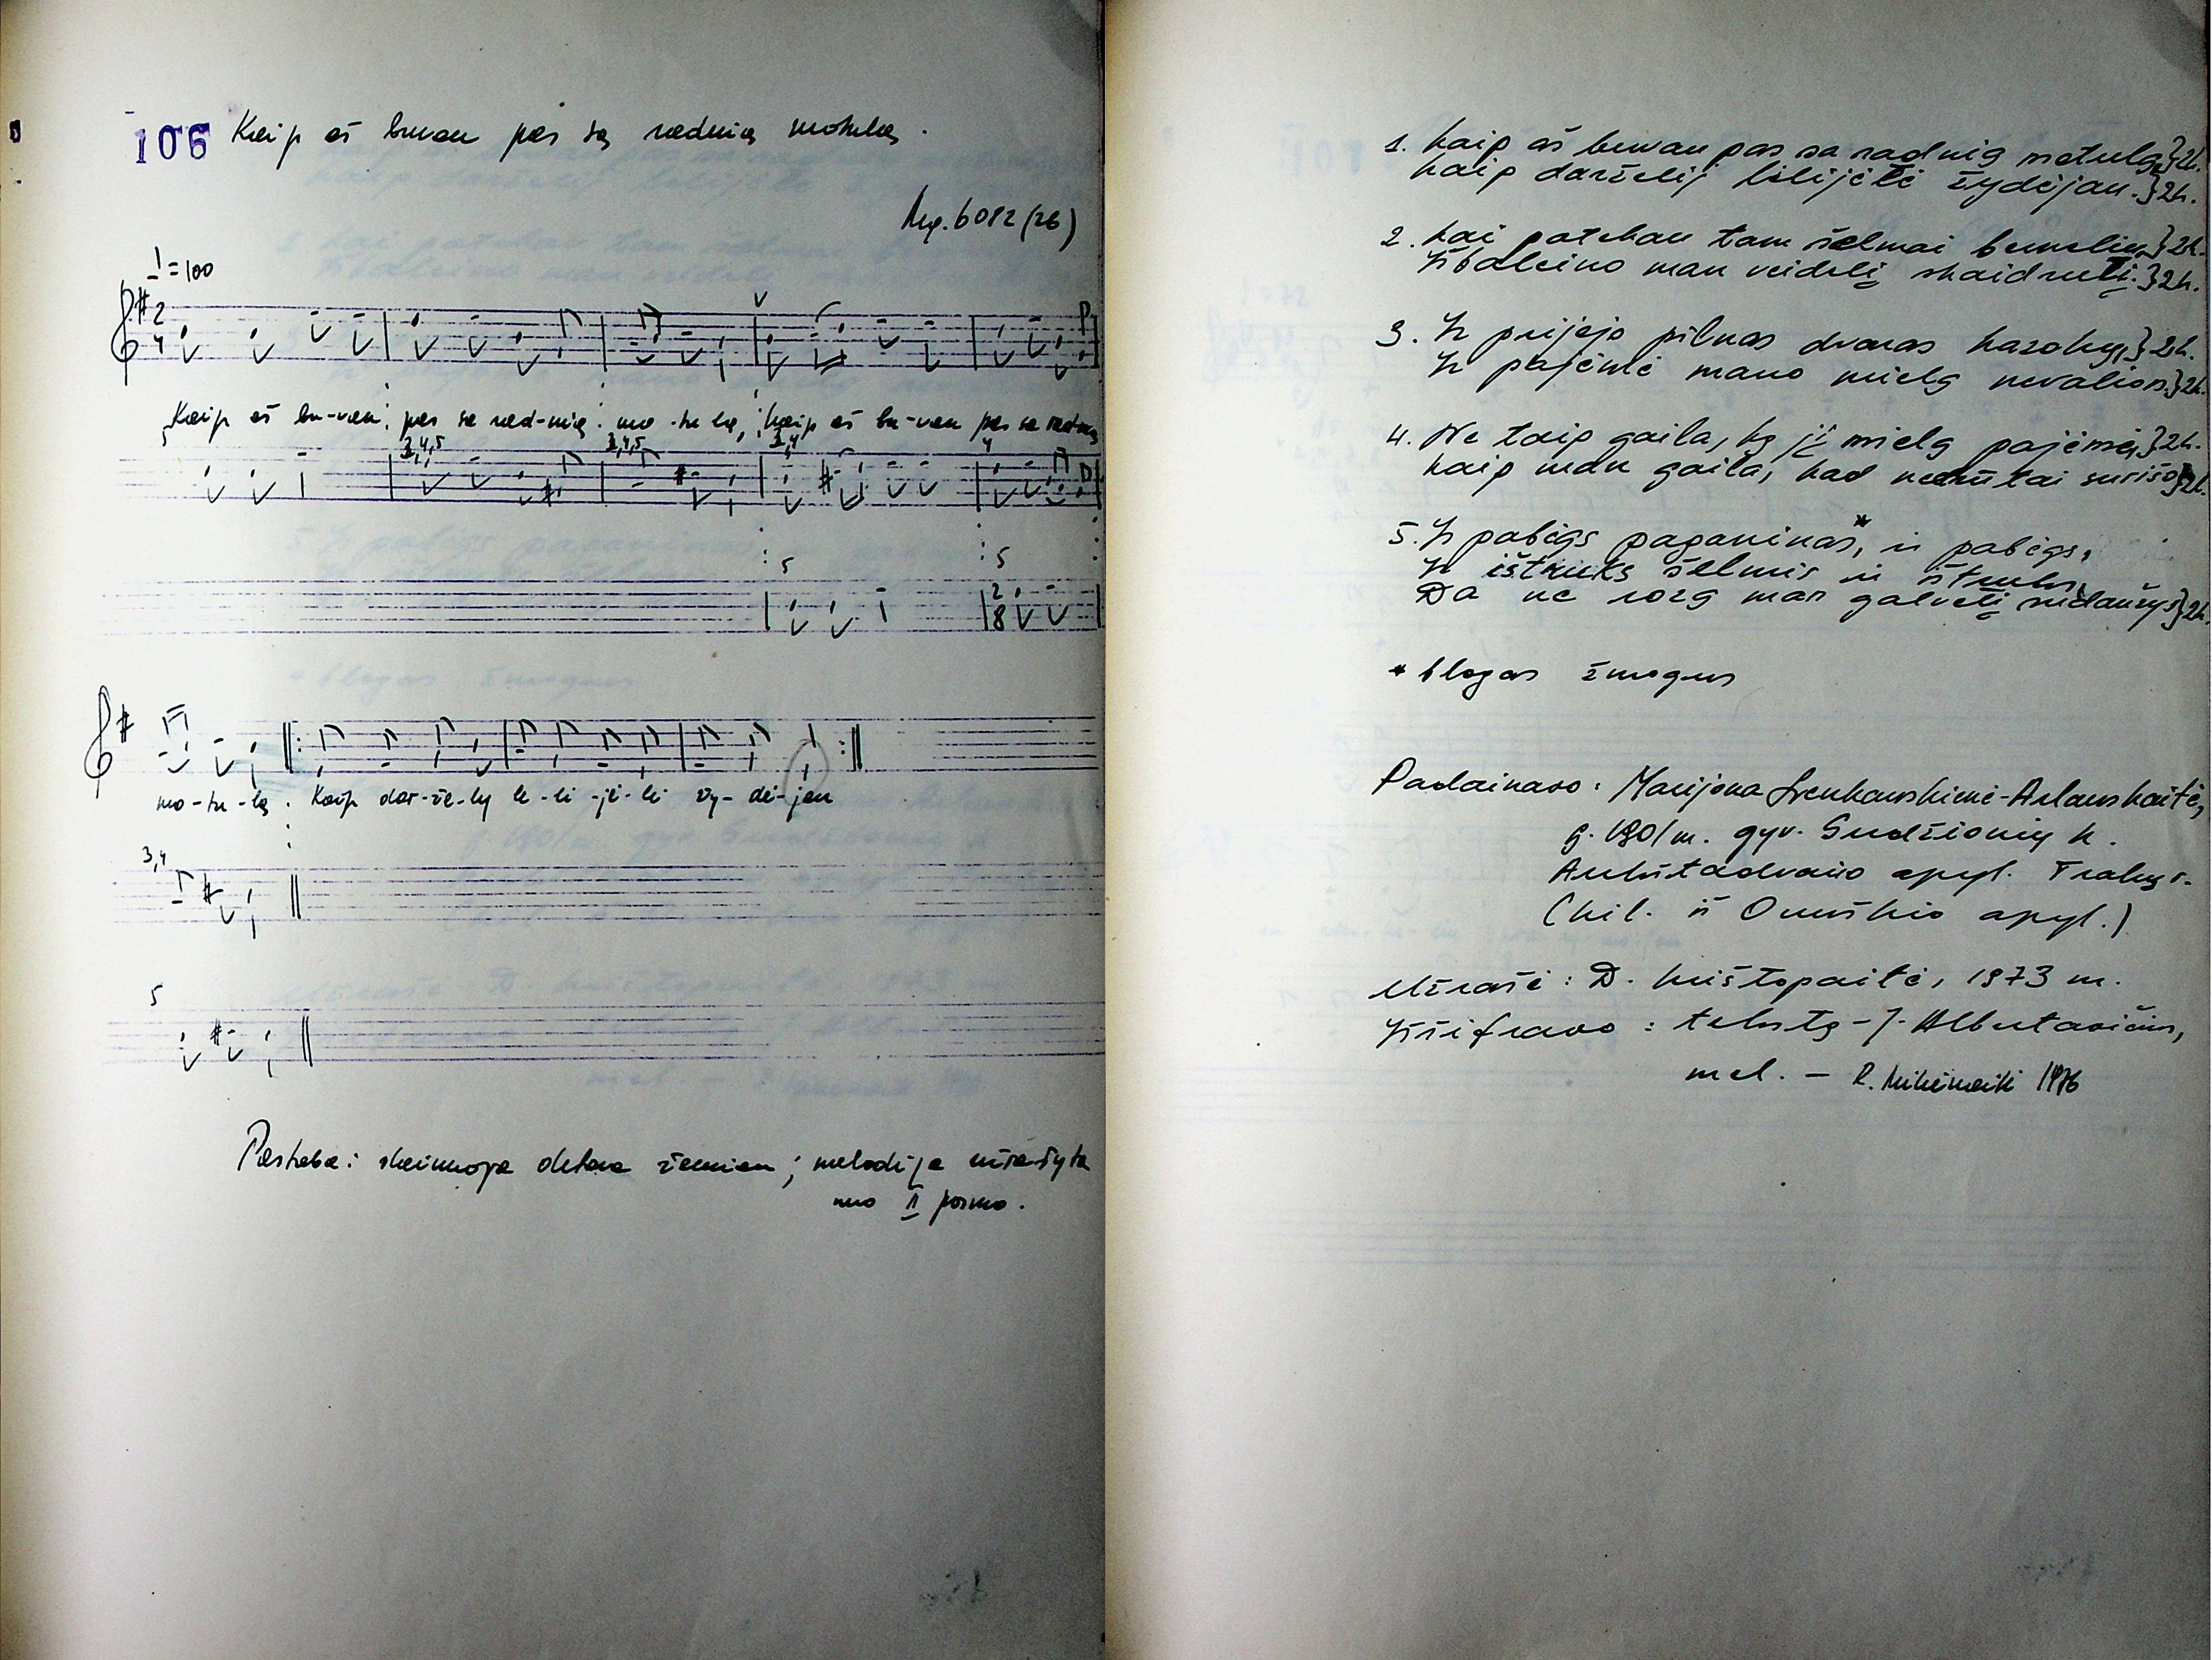 106 Kaip aš buvau pas są radnią motulą.
Mg. 6082 (26)
=100
2
4
Kaip aš bu-vau pas sa rad-nią mo-tu-lą, kaip aš bu-vau pas sa radnią
3,4,5 3,4,5 3,4 4
5 5
2
8
mo-tu-lą. Kaip dar-že-ly le-li-jė-lė žy-dė-jau
3,4
5
Pastaba: skambėja oktava žemiau; melodija užrašyta
nuo II posmo.
1. Kaip aš buvau pas sa radnią motulą,}2k.
Kaip darželij lelijėlė žydėjau.}2k.
2. Kai patekau tam šelmai berneliui,}2k.
Išbaleino man veidelį skaidrutį.}2k.
3. Ir prijojo pilnas dvaras kazokų,}2k.
Ir pajėmė mano mielą nevalion.}2k.
4. Ne taip gaila, ką jį mielą pajėmė,}2k.
Kaip man gaila, kad nedrūtai surišo.}2k.
5. Ir pabėgs paganinas*, ir pabėgs,
Ir ištruks šelmis ir ištruks,
Da ne rozą man galvelį sudaužys}2k.
* blogas žmogus
Padainavo: Marijona Senkauskienė-Arlauskaitė,
g. 1901 m. gyv. Gudžionių k.
Aukštadvario apyl. Trakų r.
(kil. iš Onuškio apyl.)
Užrašė: D. Krištopaitė, 1973 m.
Iššifravo: tekstą - J. Albertavičius,
mel. - R. Mikėnaitė 1976